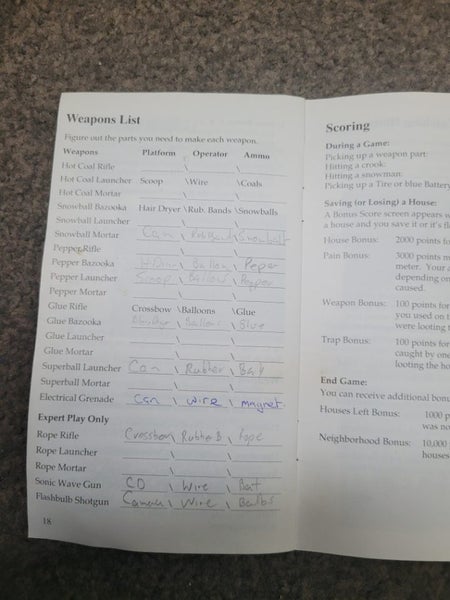 Weapons List
Figure out the parts you need to make each weapon.
Weapons Platform Operator Ammo
Hot Coal Rifle \ \
Hot Coal Launcher Scoop \Wire \Coals
Hot Coal Mortar \ \
Snowball Bazooka Hair Dryer \Rub. Bands \Snowballs
Snowball Launcher \ \
Snowball Mortar Can \ \Snowball
Pepper Rifle \ \
Pepper Bazooka H Drier \ Ballon \ Peper
Pepper Launcher Scoop \ Balloon \ Pepper
Pepper Mortar \ \
Glue Rifle Crossbow \Balloons \Glue
Glue Bazooka \ Balloon \ Glue
Glue Launcher \ \
Glue Mortar \ \
Superball Launcher Can \ Rubber \ Ball
Superball Mortar \ \
Electrical Grenade Can \ wire \ magnet.
Expert Play Only
Rope Rifle Crossbow \ Rubber B \ Rope
Rope Launcher \ \
Rope Mortar \ \
Sonic Wave Gun CD \ Wire \ Bat
Flashbulb Shotgun Camera \ Wire \ Bulbs
18
Scoring
During a Game:
Picking up a weapon part:
Hitting a crook:
Hitting a snowman:
Picking up a Tire or blue Battery
Saving (or Losing) a House:
A Bonus Score screen appears w
a house and you save it or it's fl
House Bonus: 2000 points f
Pain Bonus: 3000 points m
meter. Your a
depending on
caused.
Weapon Bonus: 100 points for
you used on t
were looting t
Trap Bonus: 100 points for
caught by one
looting the ho
End Game:
You can receive additional bonu
Houses Left Bonus: 1000 p
was no
Neighborhood Bonus: 10,000
houses